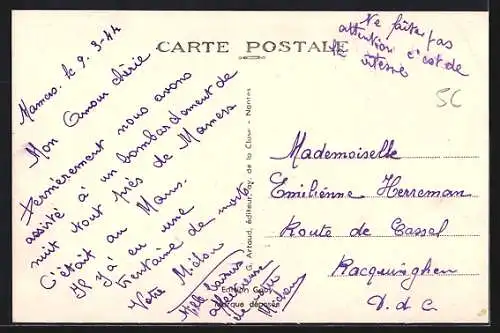 CARTE POSTALE
Ne faites pas
attention c'est de
la vitesse
5C
Mamers. le 9-3-44
Mon Amour chérie
Dernièrement nous avons
assisté à un bombardement de
nuit tout près de Mamers
C'était au Mans.
Il y a eu une
trentaine de morts
Votre
Mille baisers
affectueuse
de votre
G. Artaud, éditeur, de la Clour - Nantes
Edition Gaby
Marque déposée
Mademoiselle
Emilienne Herreman
Route de Cassel
Racquinghem
P. d. C